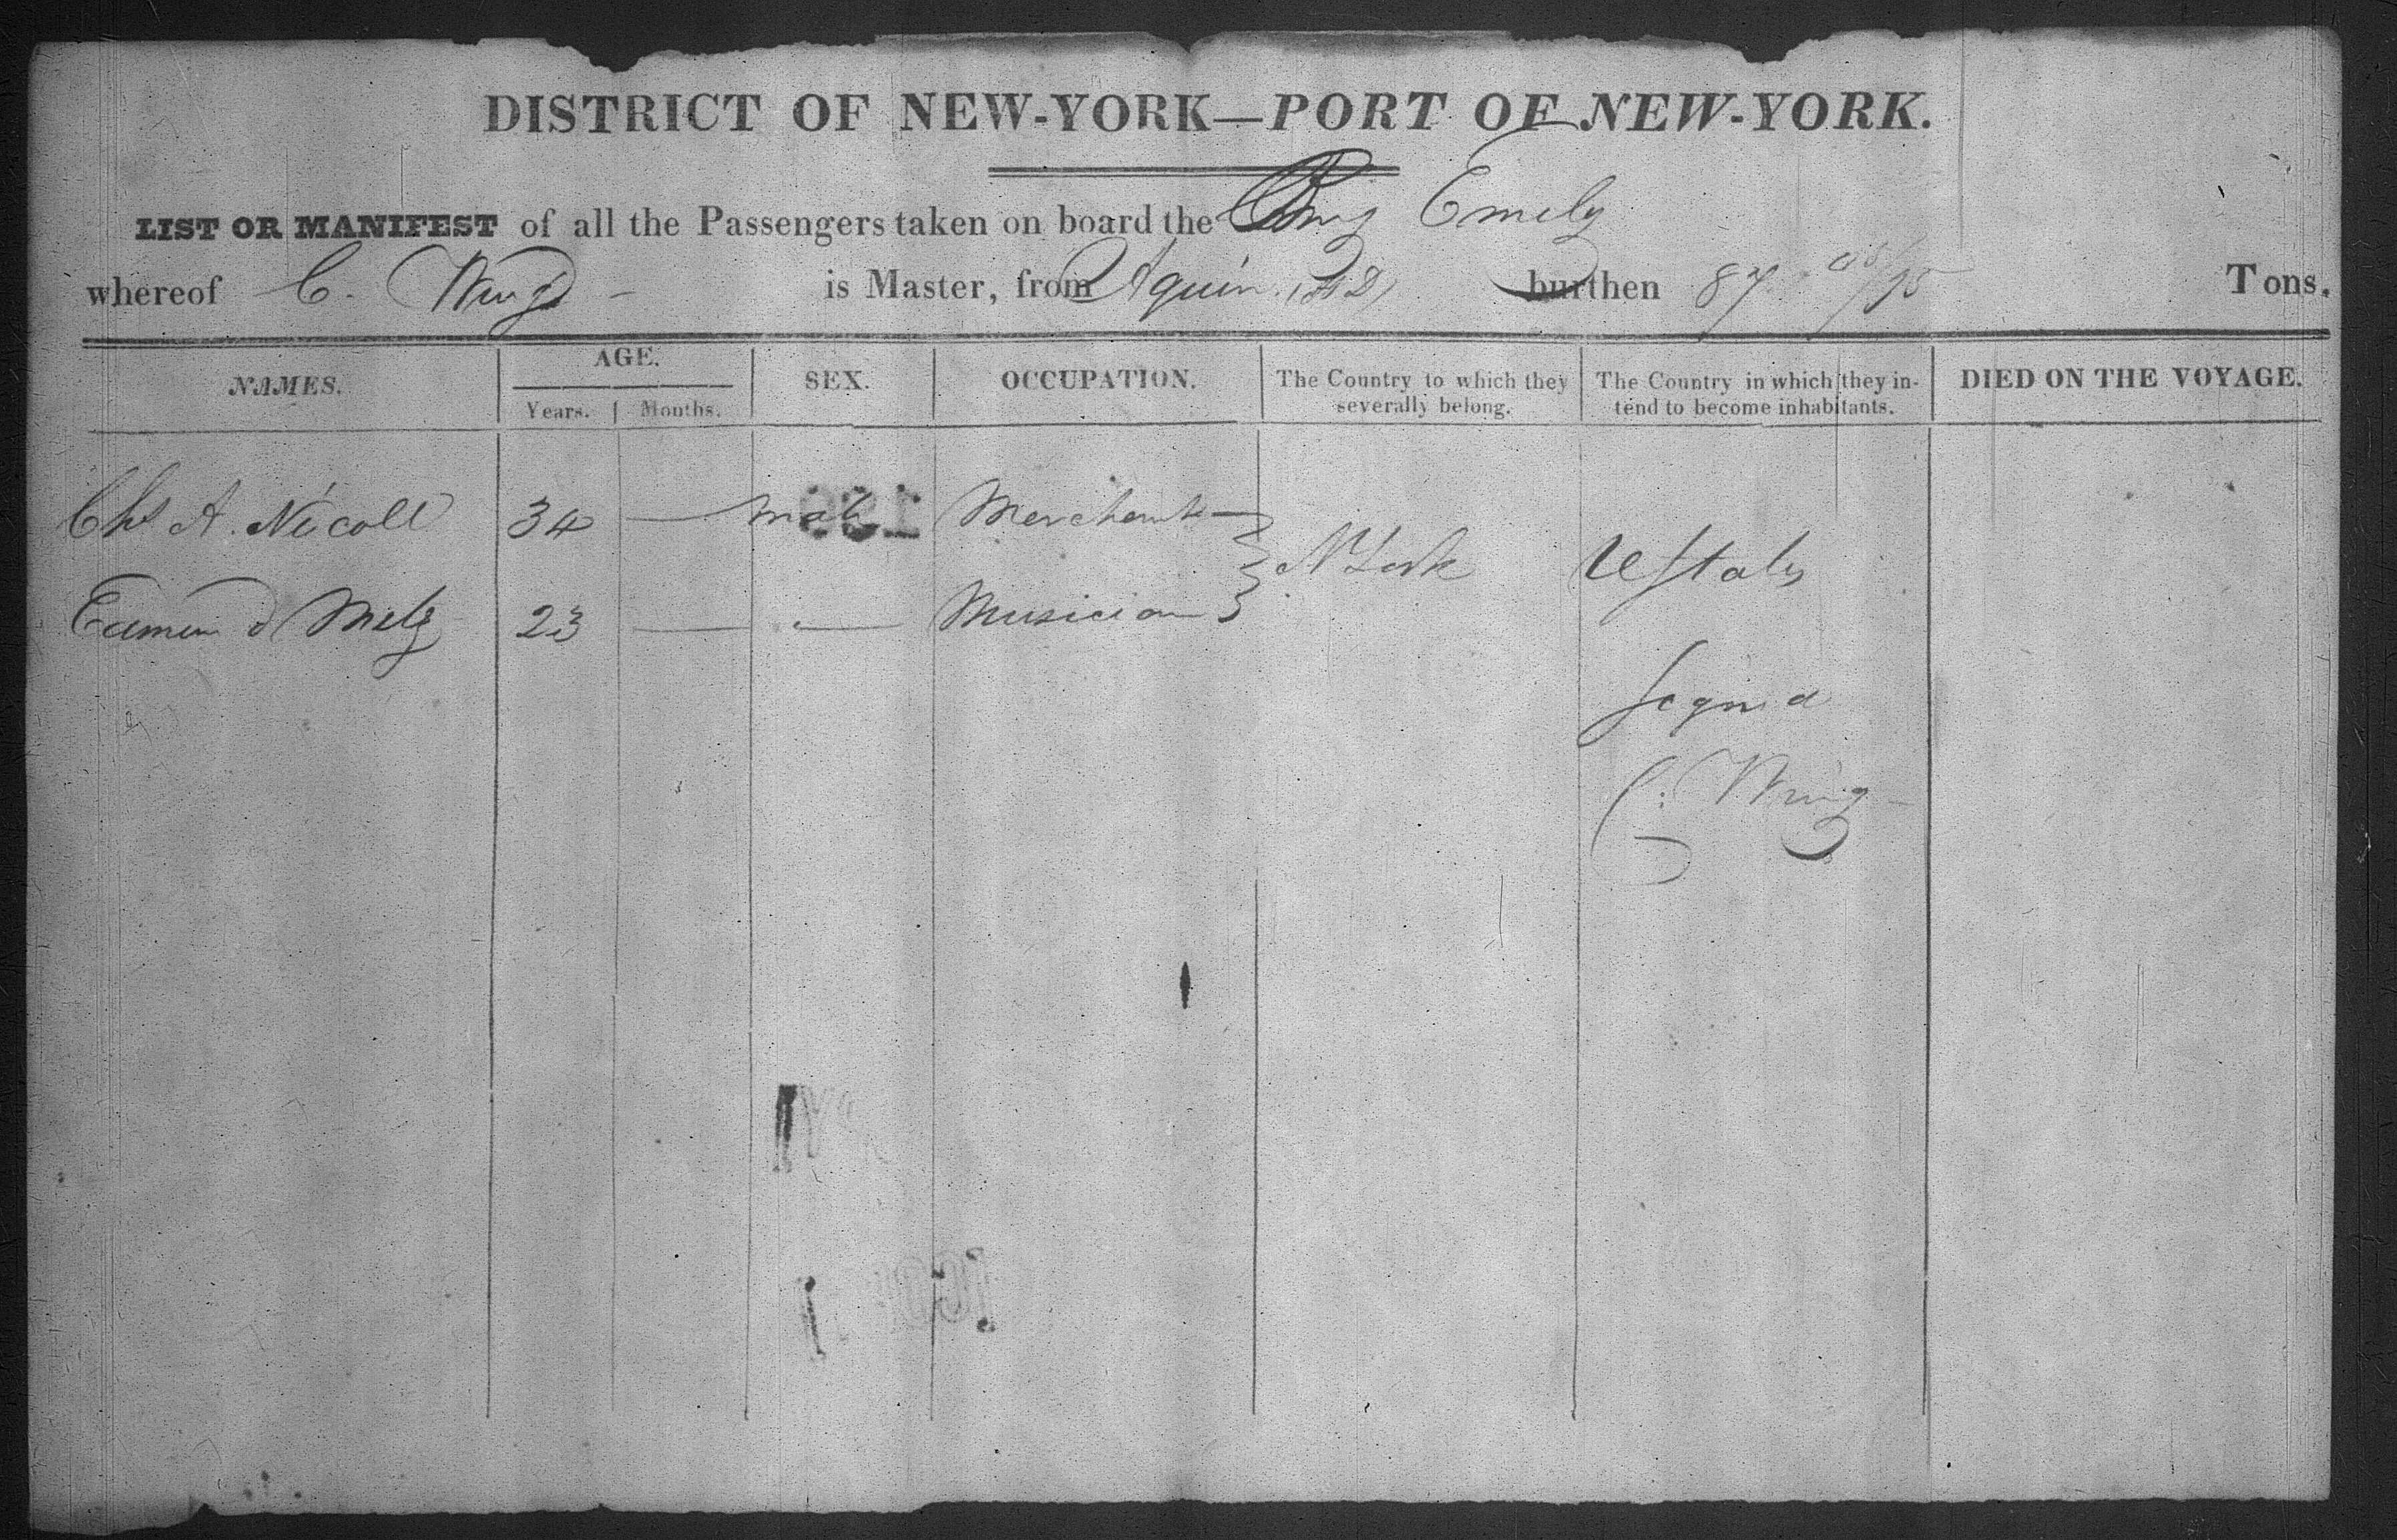 DISTRICT OF NEW-YORK—PORT OF NEW-YORK.
LIST OR MANIFEST of all the Passengers taken on board the Brig Emely
whereof C. Wing is Master, from Aquin burthen 87 /95 Tons.
NAMES. AGE. SEX. OCCUPATION. The Country to which they severally belong. The Country in which they in- tend to become inhabitants. DIED ON THE VOYAGE.
Years. Months.
Chs A. Nicoll 34 — male Merchant —
N York UStates
23 — " — Musician
Signed
C. Wing